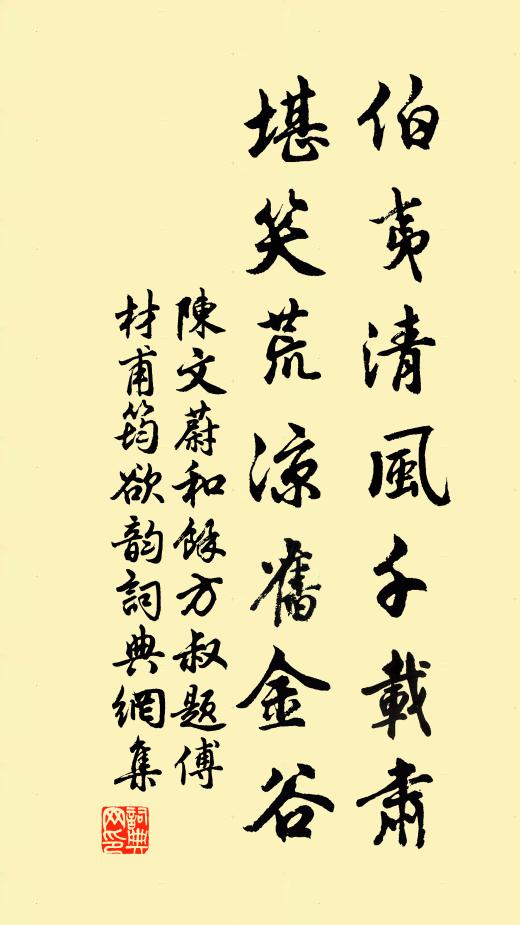 伯夷清風千載肅
堪笑荒涼舊金谷
陳文蔚和餘方叔題傅
材甫筠欲韵詞典網集
詞典網印